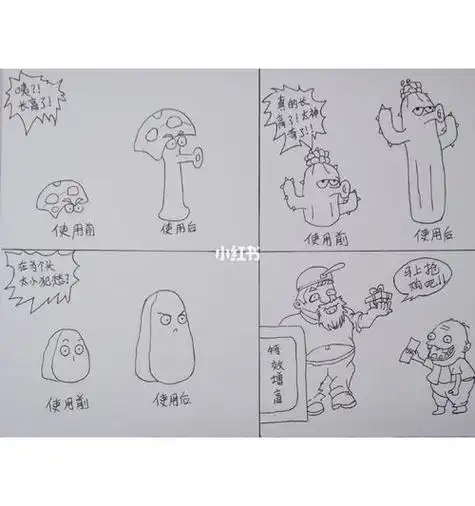 咦?!
长高了!
使用前
使用后
真的长
高了!太神
奇了!!
使用前
使用后
小红书
在为个头
太小犯愁?
使用前
使用后
马上抢
购吧!!
特效增高